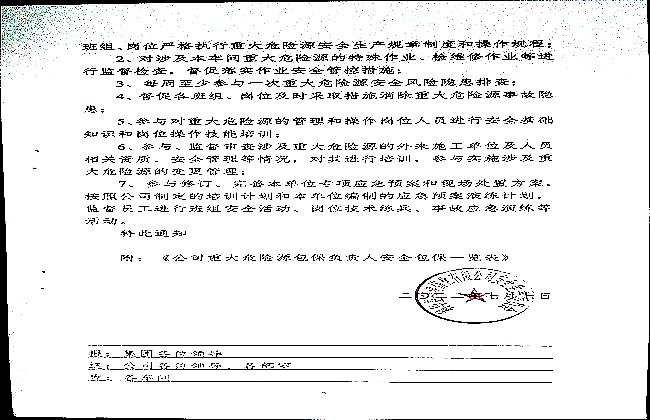 班组、岗位严格执行重大危险源安全生产规章制度和操作规程；
2、对涉及本车间重大危险源的特殊作业、检维修作业等进
行监督检查，督促落实作业安全管控措施；
3、每周至少参与一次重大危险源安全风险隐患排查；
4、督促各班组、岗位及时采取措施消除重大危险源事故隐
患；
5、参与对重大危险源的管理和操作岗位人员进行安全基础
知识和岗位操作技能培训；
6、参与、监督审查涉及重大危险源的外来施工单位及人员
相关资质、安全管理等情况，对其进行培训，参与实施涉及重
大危险源的变更管理；
7、参与修订、完善本单位专项应急预案和现场处置方案。
按照公司制定的培训计划和本单位编制的应急预案演练计划，
监督员工进行班组安全活动、岗位技术练兵、事故应急演练等
活动。
特此通知
附：《公司重大危险源包保负责人安全包保一览表》
二 年七月 日
报：集团各位领导
送：公司各位领导、各部室
发：各车间